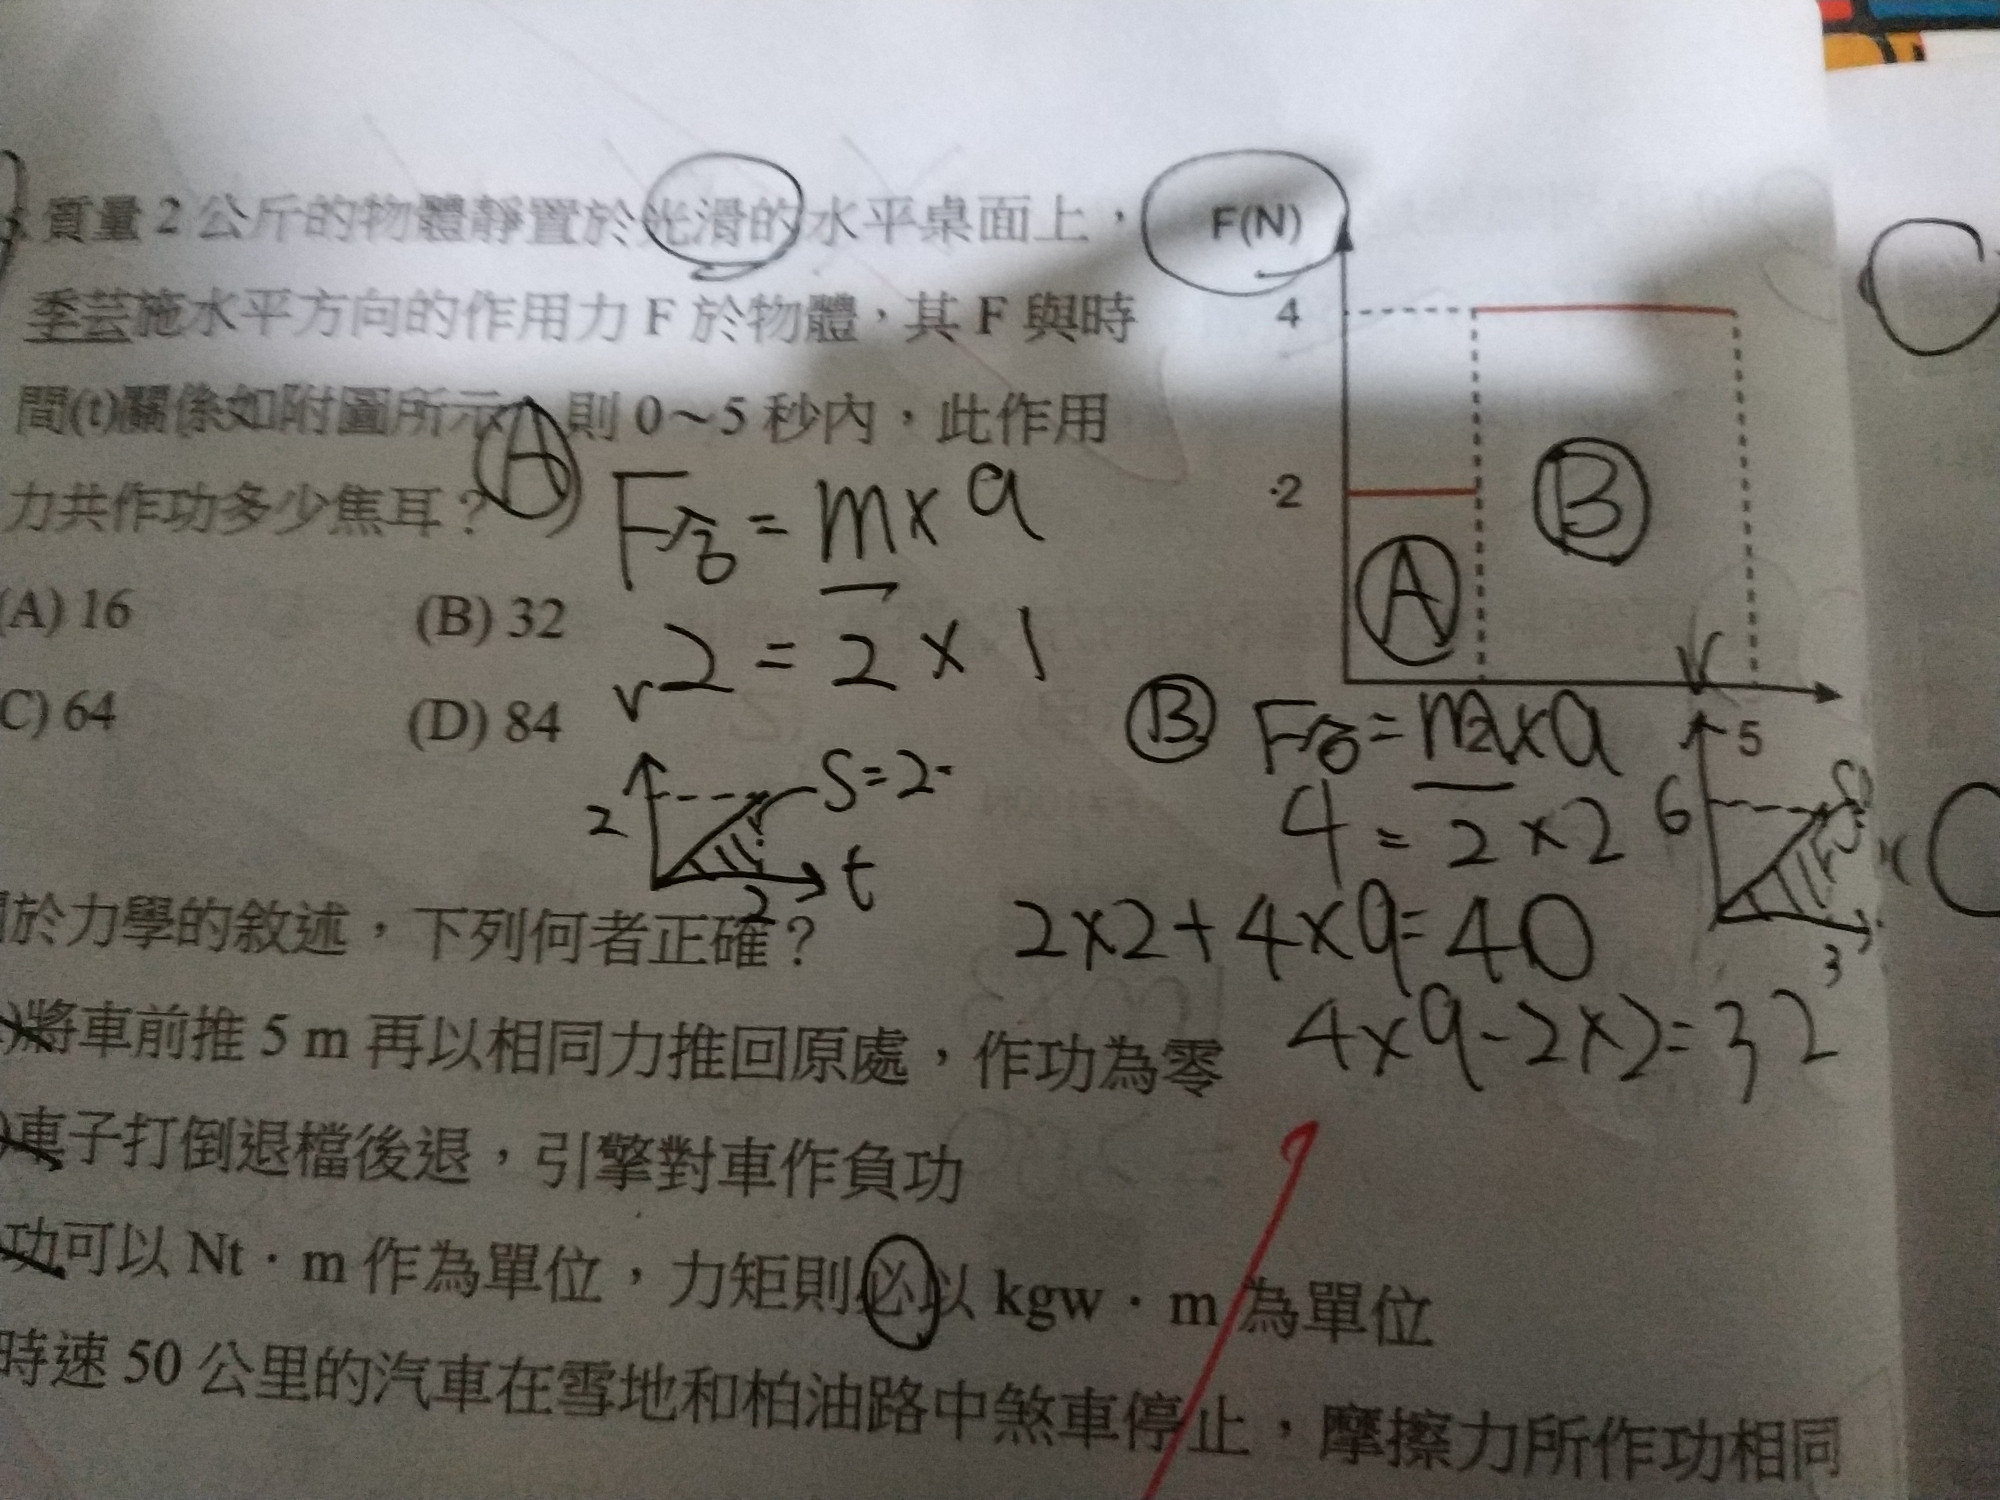 質量 2 公斤的物體靜置於光滑的水平桌面上，
季芸施水平方向的作用力 F 於物體，其 F 與時
間(t)關係如附圖所示，則 0～5 秒內，此作用
力共作功多少焦耳？
(A) 16 (B) 32
(C) 64 (D) 84
F(N)
4
2
5
A
B
A
F合 = m x a
2 = 2 x 1
v
2
S=2
t
2
B
F合 = m x a
2
4 = 2 x 2
v
6
3
2x2+4x9=40
4x9-2x2=32
於力學的敘述，下列何者正確？
)將車前推 5 m 再以相同力推回原處，作功為零
)車子打倒退檔後退，引擎對車作負功
功可以 Nt · m 作為單位，力矩則必以 kgw · m 為單位
時速 50 公里的汽車在雪地和柏油路中煞車停止，摩擦力所作功相同